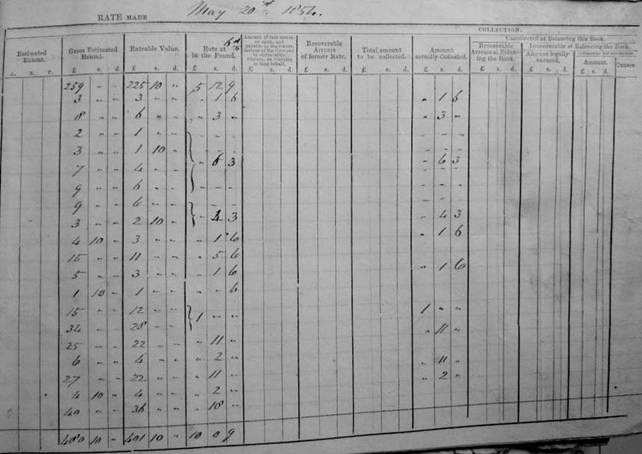 RATE MADE May 20th 1856.
COLLECTION.
Uncollected at Balancing this Book.
Estimated Extent. Gross Estimated Rental. Rateable Value. Rate at 6d in the Pound. Recoverable Arrears of former Rate. Total amount to be collected. Amount actually Collected. Recoverable Arrears at Balancing the Book. Irrecoverable at Balancing the Book.
Amount legally excused. Amount. Causes.
A. R. P. £ s. d. £ s. d. £ s. d. £ s. d. £ s. d. £ s. d. £ s. d. £ s. d. £ s. d. £ s. d.
259 " " 225 10 " 5 12 9
3 " " 3 " " " 1 6 " 1 6
8 " " 6 " " " 3 " " 3 "
2 " " 1 " " - - - - - -
3 " " 1 10 "
7 " " 4 " " " 6 3 " 6 3
9 " " 6 " " - - - - - -
9 " " 6 " " - - - - - -
3 " " 2 10 " " 4 3 " 4 3
4 10 " 3 " " " 1 6 " 1 6
15 " " 11 " " " 5 6
5 " " 3 " " " 1 6 " 1 6
1 10 " 1 " " " " 6
15 " " 12 " " 1 " "
34 " " 28 " " 1 " " " 11 "
25 " " 22 " " " 11 "
6 " " 4 " " " 2 " " 11 "
27 " " 22 " " " 11 " " 2 "
4 10 " 4 " " " 2 "
40 " " 36 " " " 18 "
480 10 " 401 10 " 10 0 9